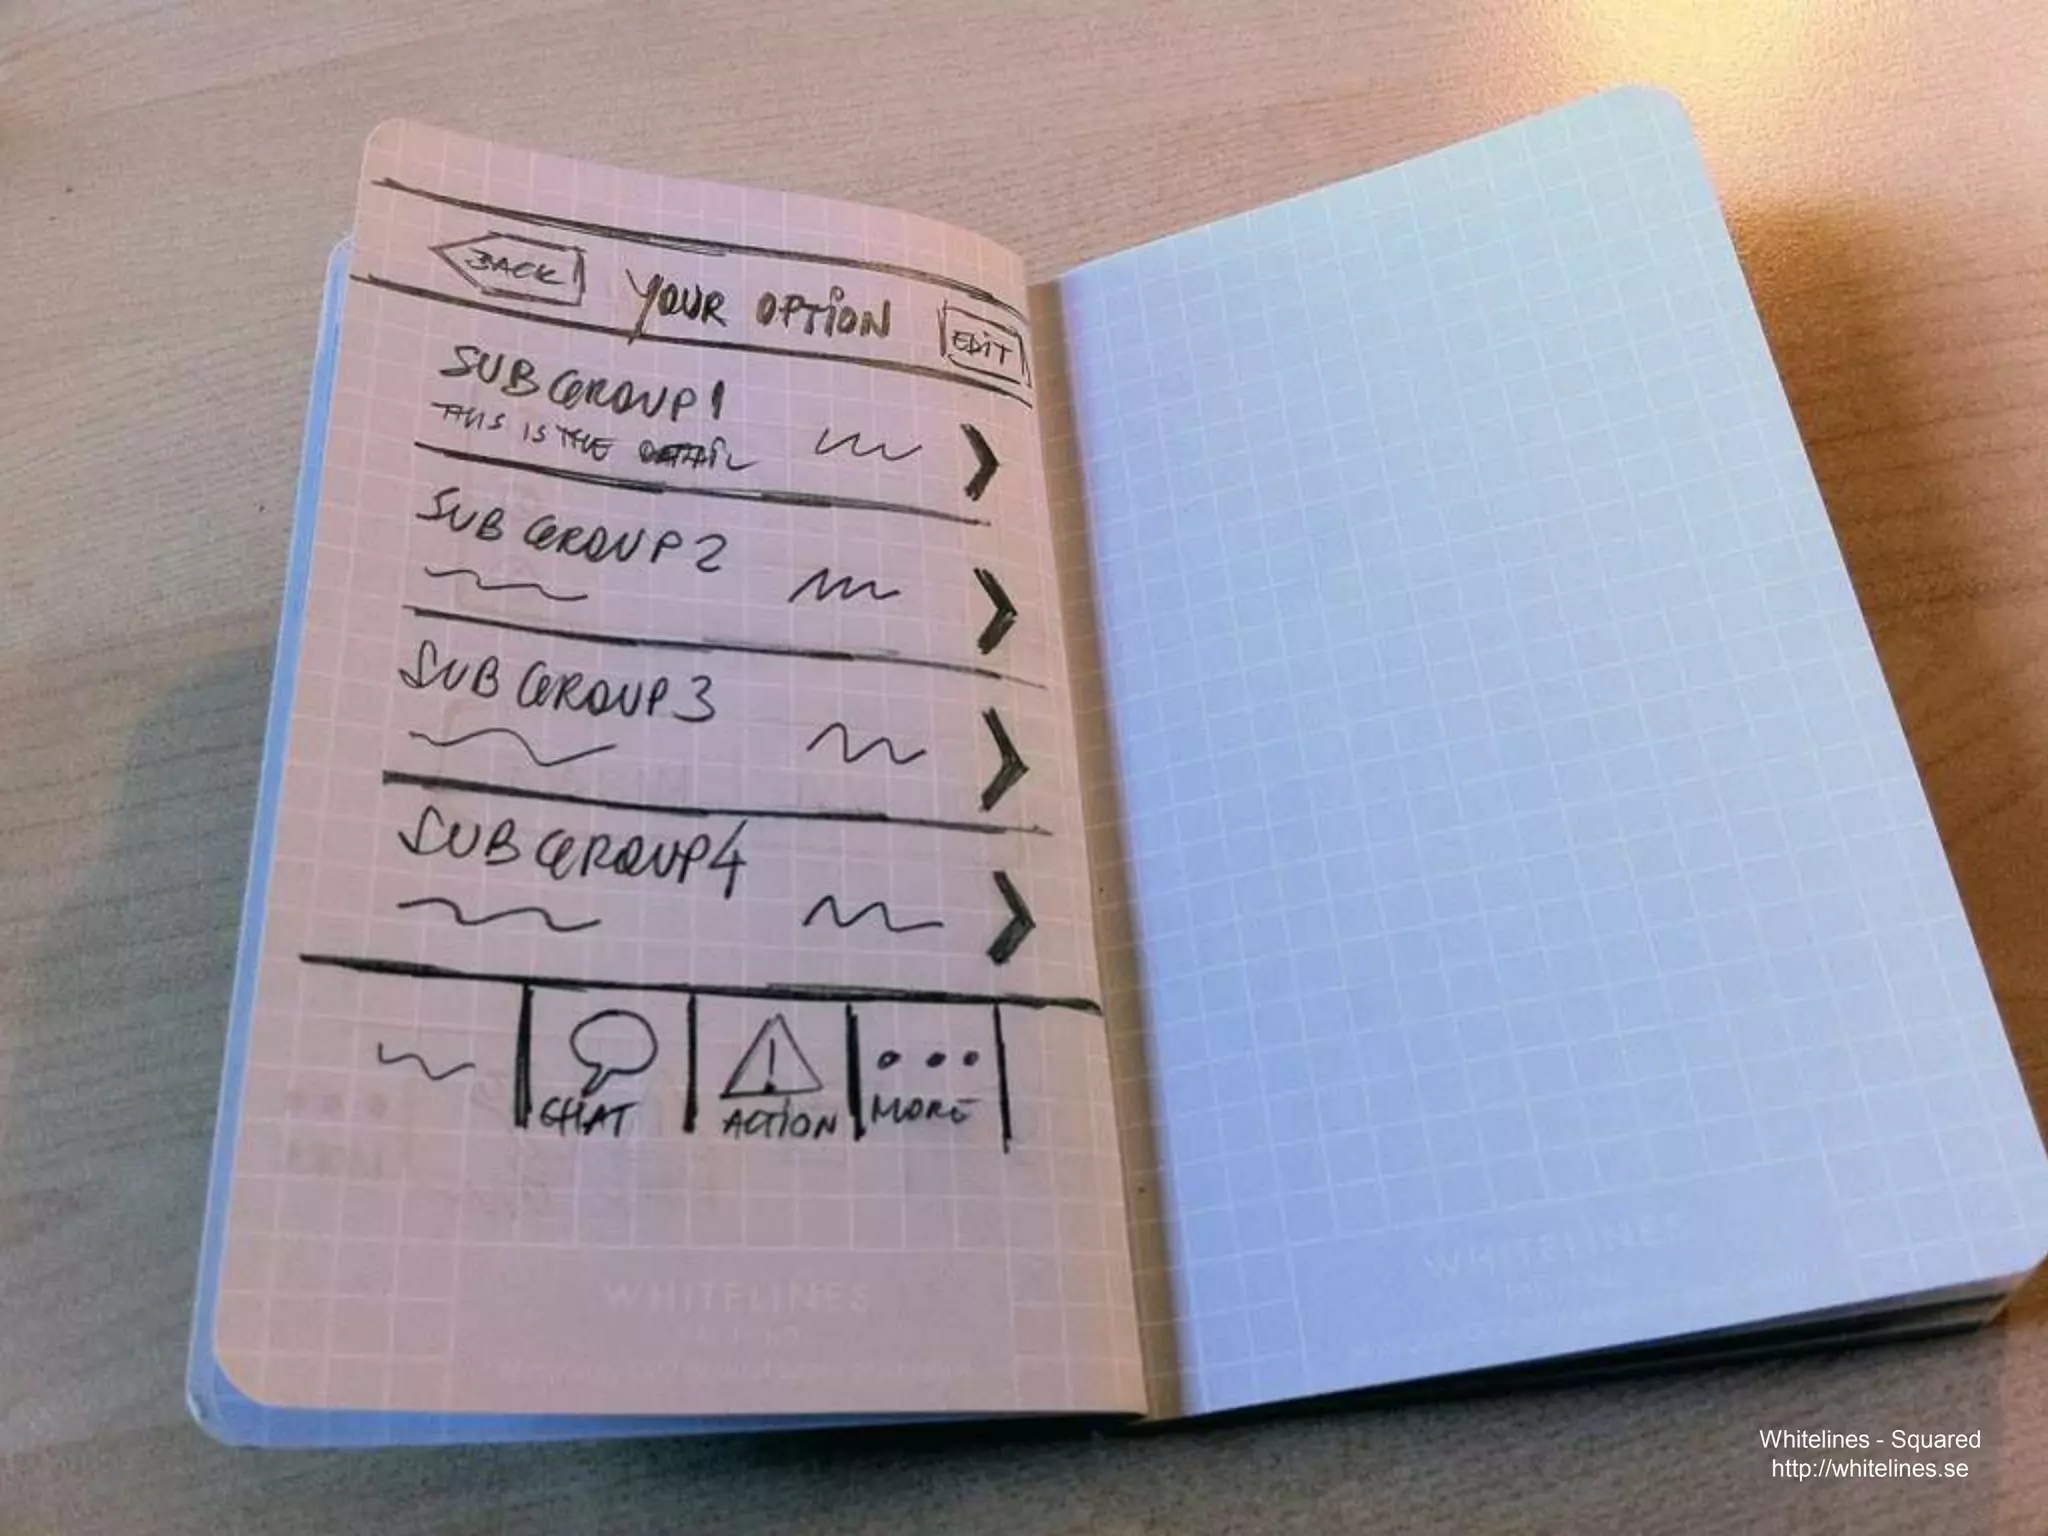 BACK YOUR OPTION EDIT
SUBGROUP1
THIS IS THE DETAIL
SUBGROUP2
SUBGROUP3
SUBGROUP4
CHAT ACTION MORE
WHITELINES
WHITELINES
Whitelines - Squared
http://whitelines.se